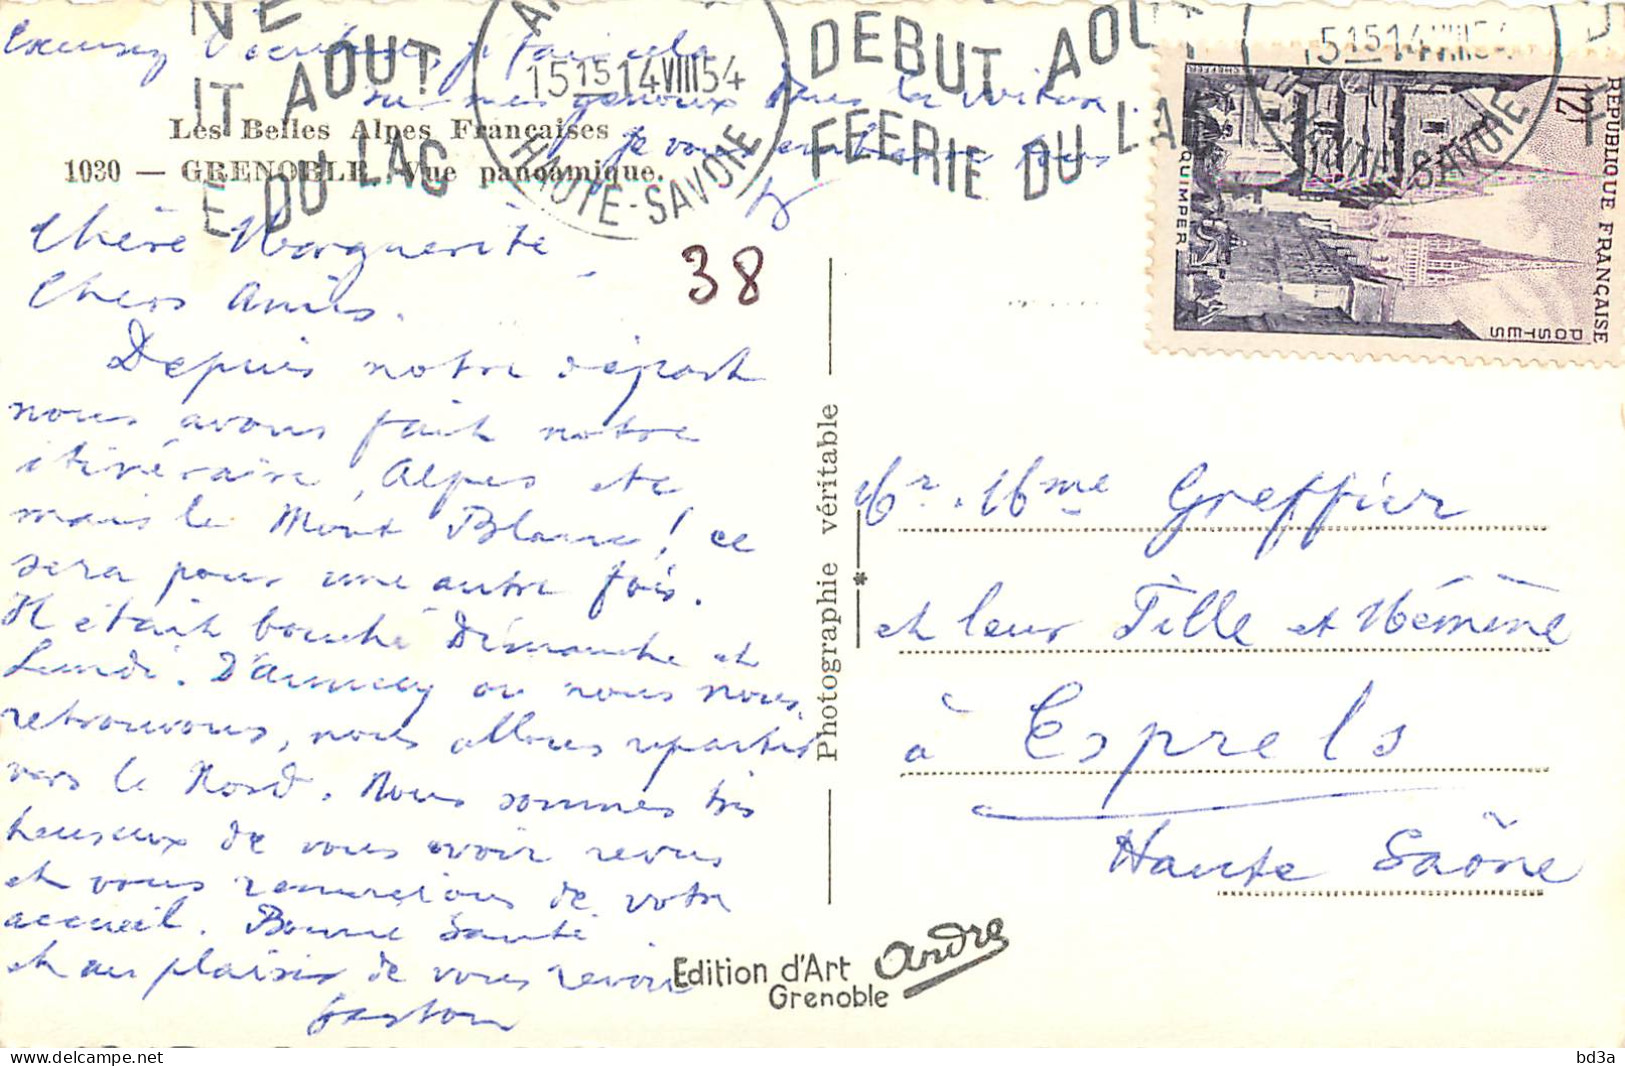 Excusez l'écriture, je fais cela
sur mes genoux dans la voiture.
je vous embrasse tous
NE
IT AOUT
E DU LAC
15 15 14 VIII 54
HAUTE-SAVOIE
DEBUT AOUT
FÉERIE DU LAC
15 15 14 VIII 54
HAUTE-SAVOIE
12F
REPUBLIQUE FRANÇAISE
POSTES
QUIMPER
Les Belles Alpes Françaises
1030 — GRENOBLE. Vue panoamique.
38
Chère Marguerite,
Chers Amis.
Depuis notre départ
nous avons fait notre
itinéraire, Alpes etc
mais le Mont Blanc! ce
sera pour une autre fois.
Il était bouché Dimanche et
Lundi. D'Annecy ou nous nous
retrouvons, nous allons repartir
vers le Nord. Nous sommes très
heureux de vous avoir revus
et vous remercions de votre
accueil. Bonne Santé
et au plaisir de vous revoir
Gaston
Photographie véritable
Mr. Mme Greffier
et leur Fille et Mémène
à Esprels
Haute Saône
Edition d'Art André
Grenoble
delcampe.net
bd3a